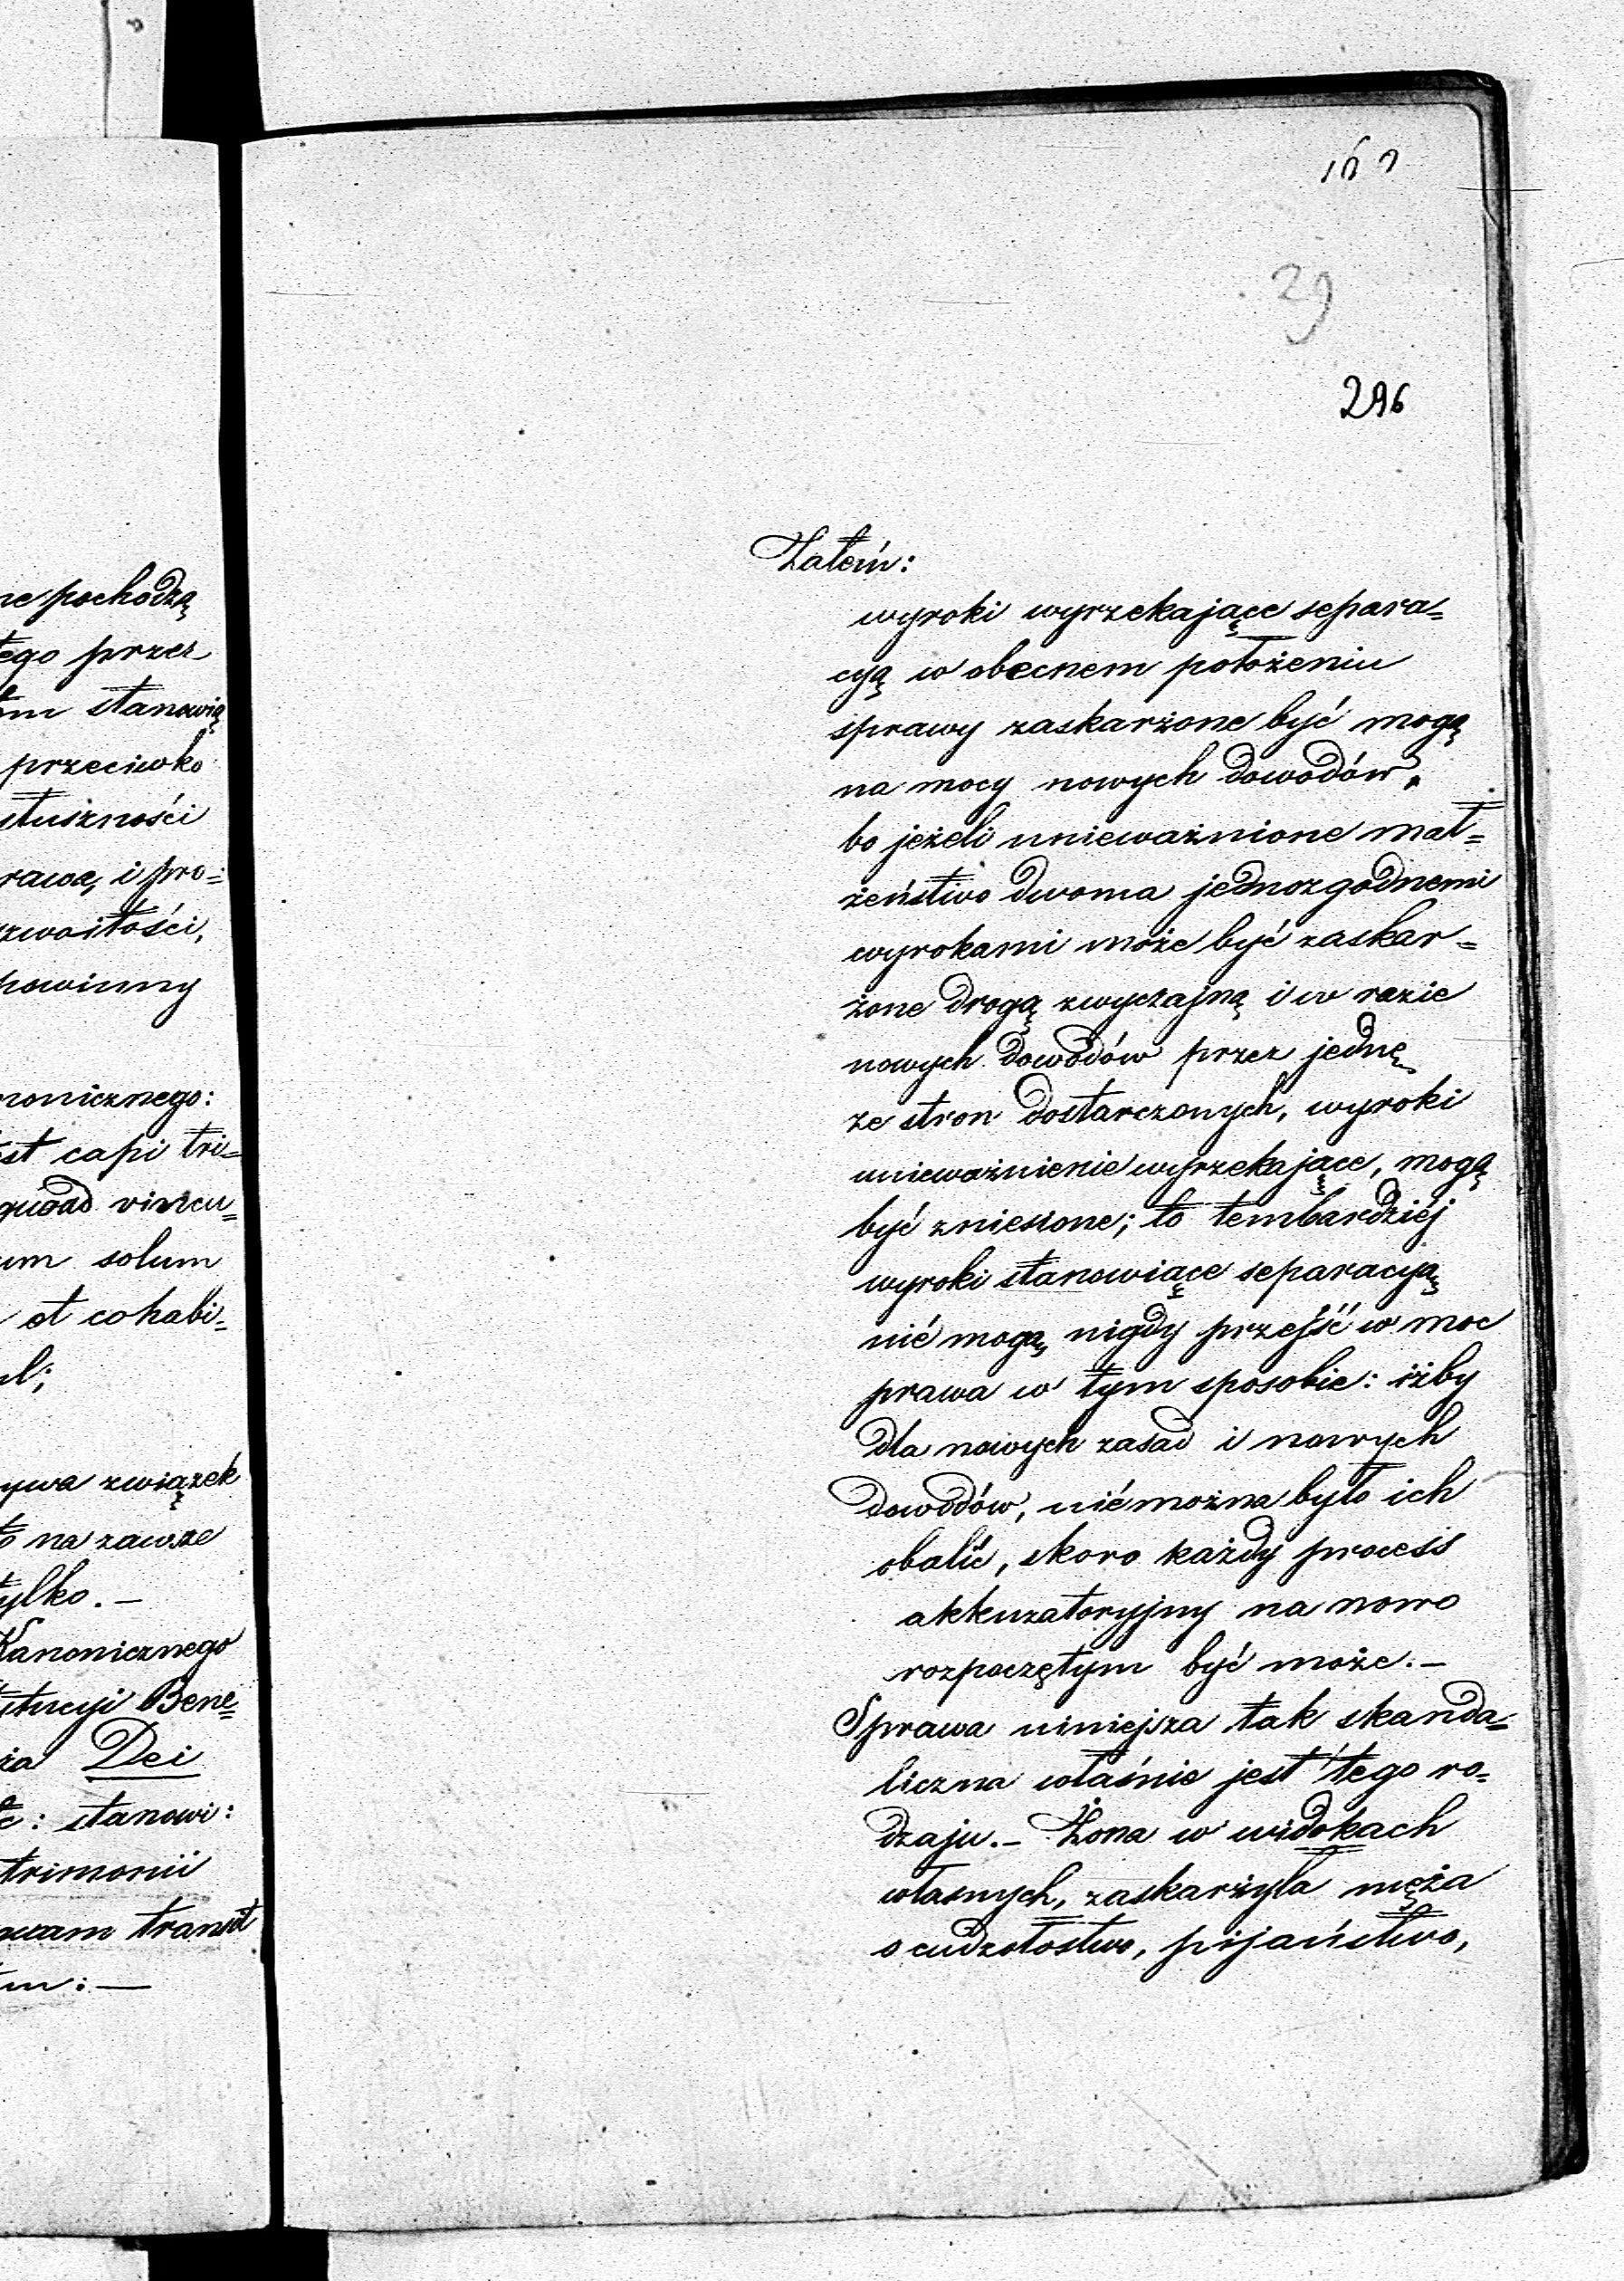 ne pochodzą
tego przez
tem stanowią
przeciwko
słuszności
prawa, i pro=
powinny
nonicznego:
est capi tri=
quoad vincu=
um solum
et cohabi=
ul;
ywa związek
to na zawsze
tylko. —
Kanonicznego
stitucyi Bene=
Dei
te: stanowi:
trimonii
transit
29
296
Zatém:
wyroki wyrzekające separa=
cyą w obecnem położeniu
sprawy zaskarżone być mogą
na mocy nowych dowodów,
bo jeżeli unieważnione mał=
żeństwo dwoma jednozgodnemi
wyrokami może być zaskar=
żone drogą zwyczajną i w razie
nowych dowodów przez jednę
ze stron dostarczonych, wyroki
unieważnienie wyrzekające, mogą
być zniesione; to tembardziéj
wyroki stanowiące separacyą
nié mogą, nigdy przejść w moc
prawa w tym sposobie: iżby
dla nowych zasad i nowych
dowodów, nié można było ich
obalić, skoro każdy process
akkuzatoryjny na nowo
rozpoczętym być może. —
Sprawa niniejsza tak skanda=
liczna właśnie jest tego ro=
dzaju. — Żona w widokach
własnych, zaskarżyła męża
o cudzołostwo, pijaństwo,